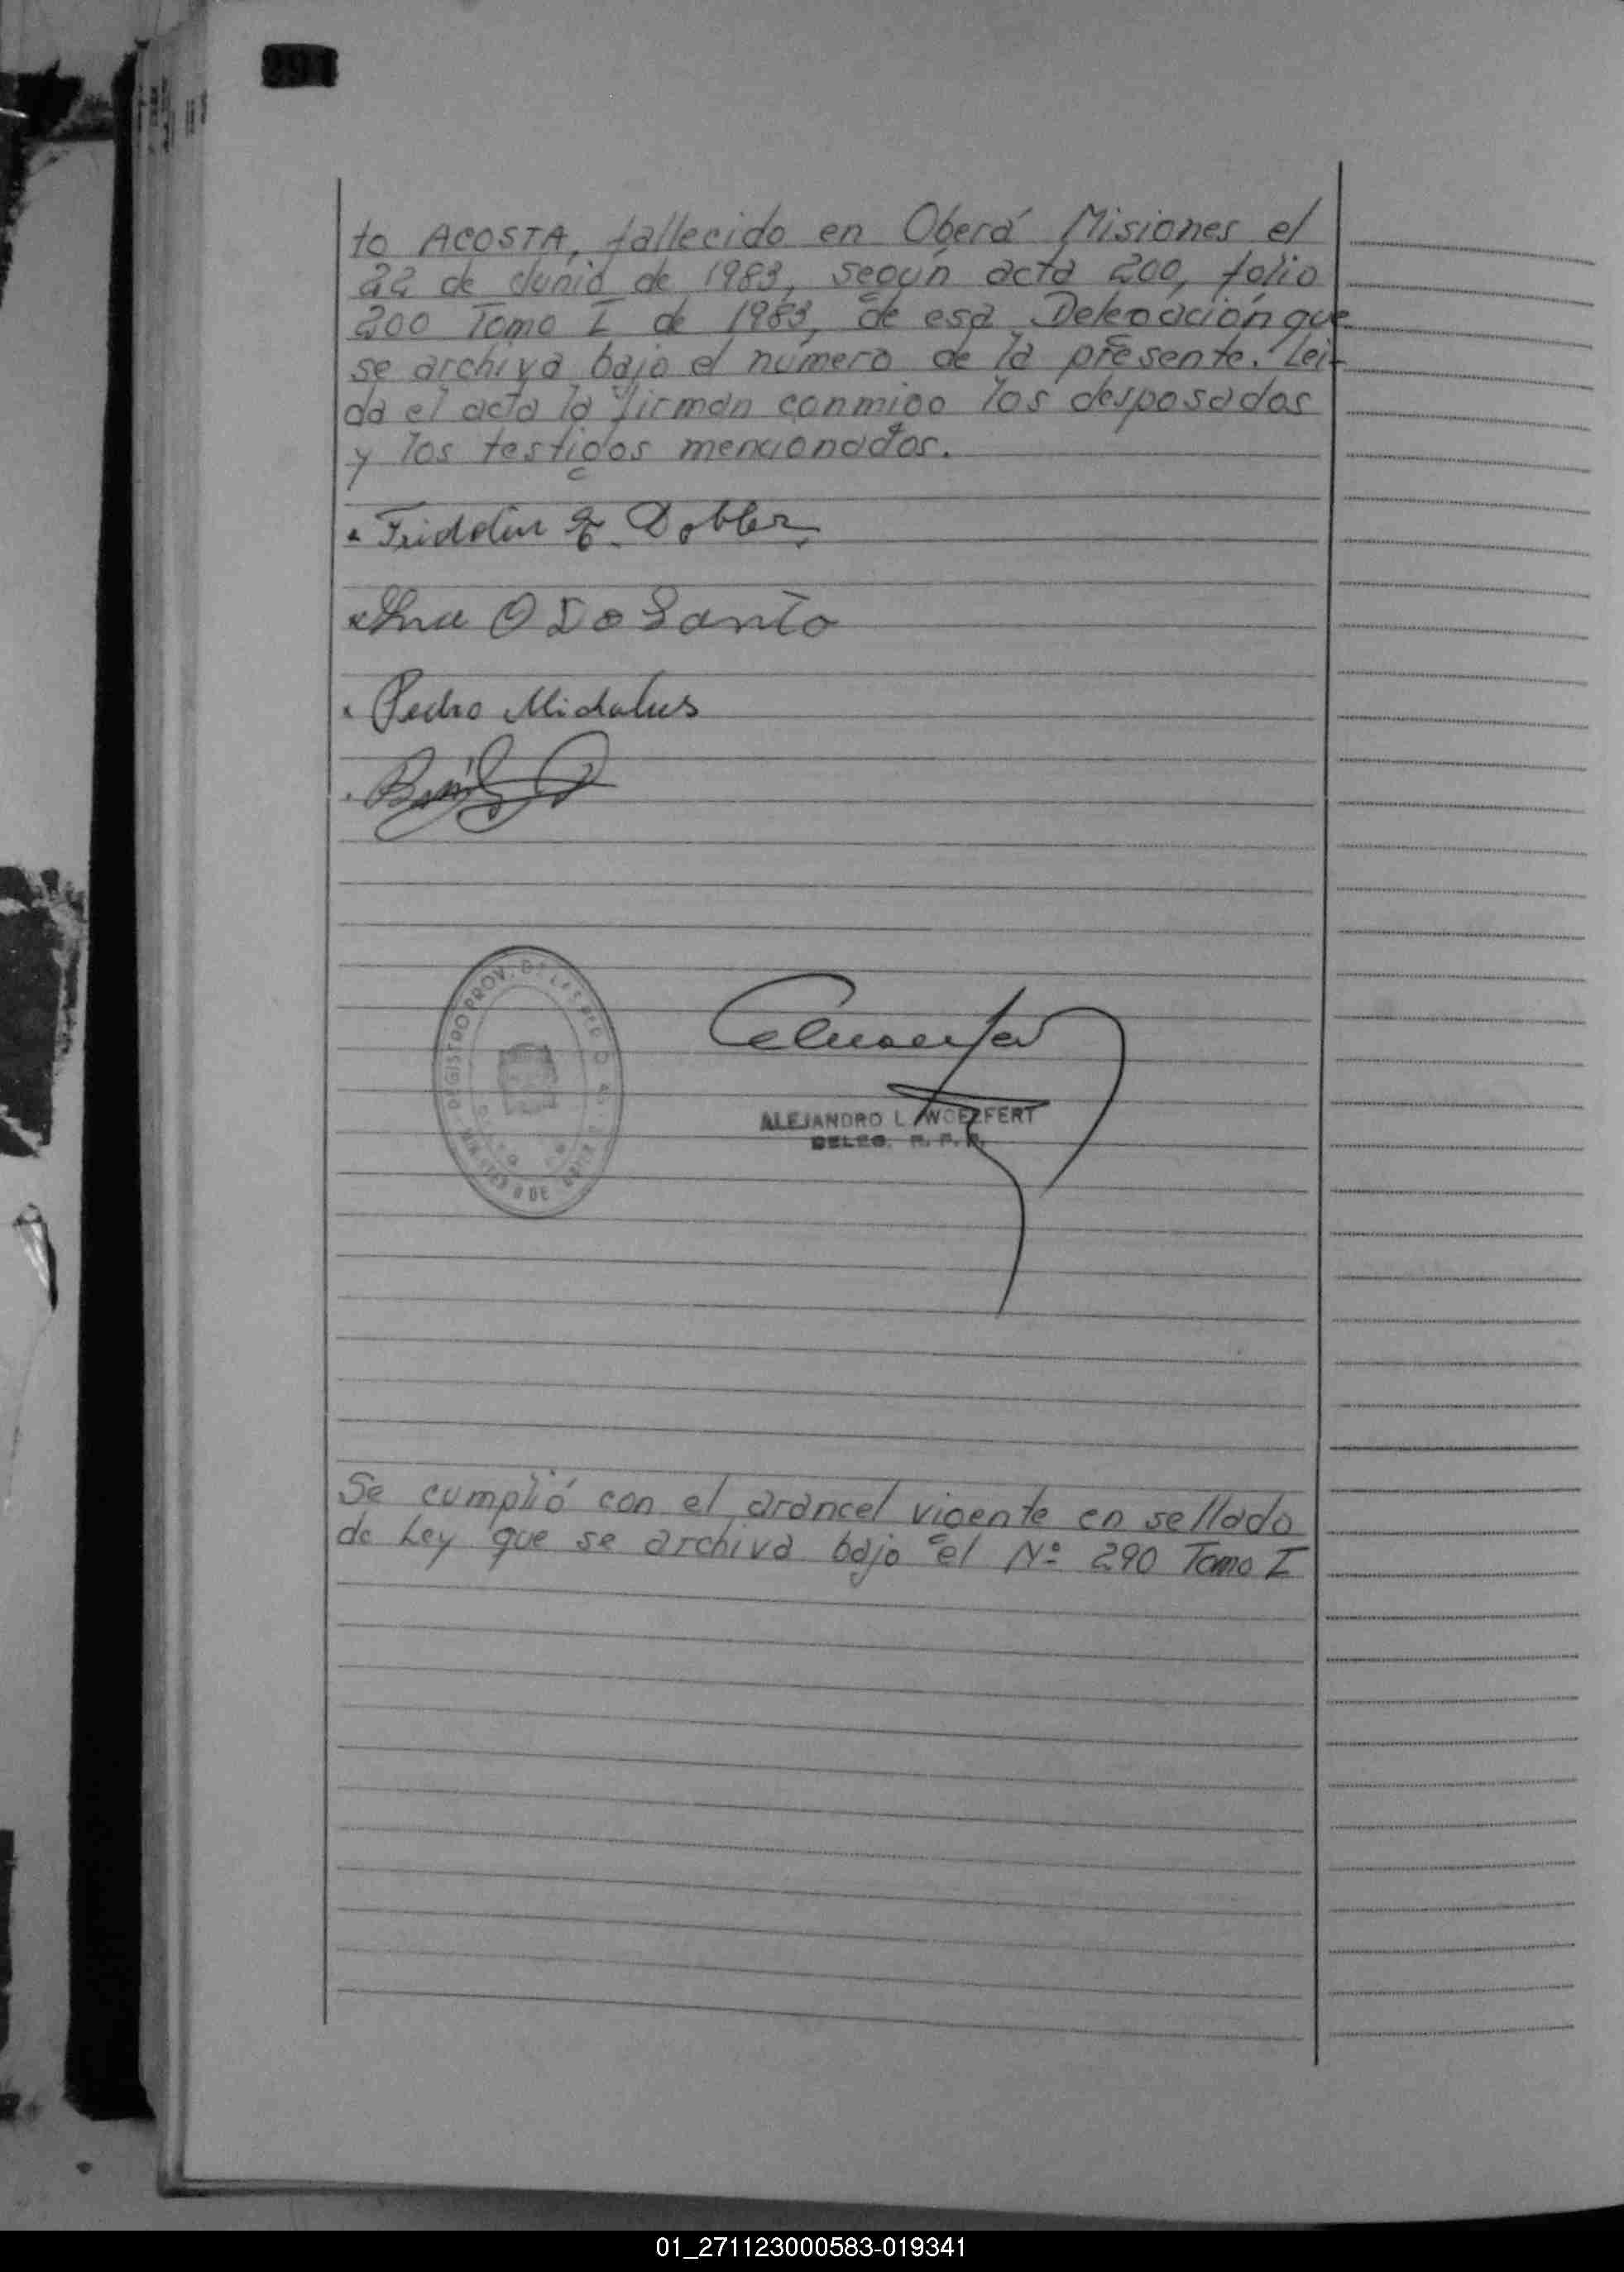 to ACOSTA, fallecido en Oberá Misiones el
22 de Junio de 1983, según acta 200, folio
200 Tomo I de 1983, de esa Delegación que
se archiva bajo el número de la presente. Leí-
da el acta la firman conmigo los desposados
y los testigos mencionados.
Fridolin Dobler
Ana O Do Santo
Pedro Midalus
REGISTRO PROV. DE LAS PERSONAS
ALEJANDRO L. WOELFERT
DELEG. R. P. P.
Se cumplió con el arancel vigente en sellado
de Ley que se archiva bajo el Nº 290 Tomo I
01_271123000583-019341